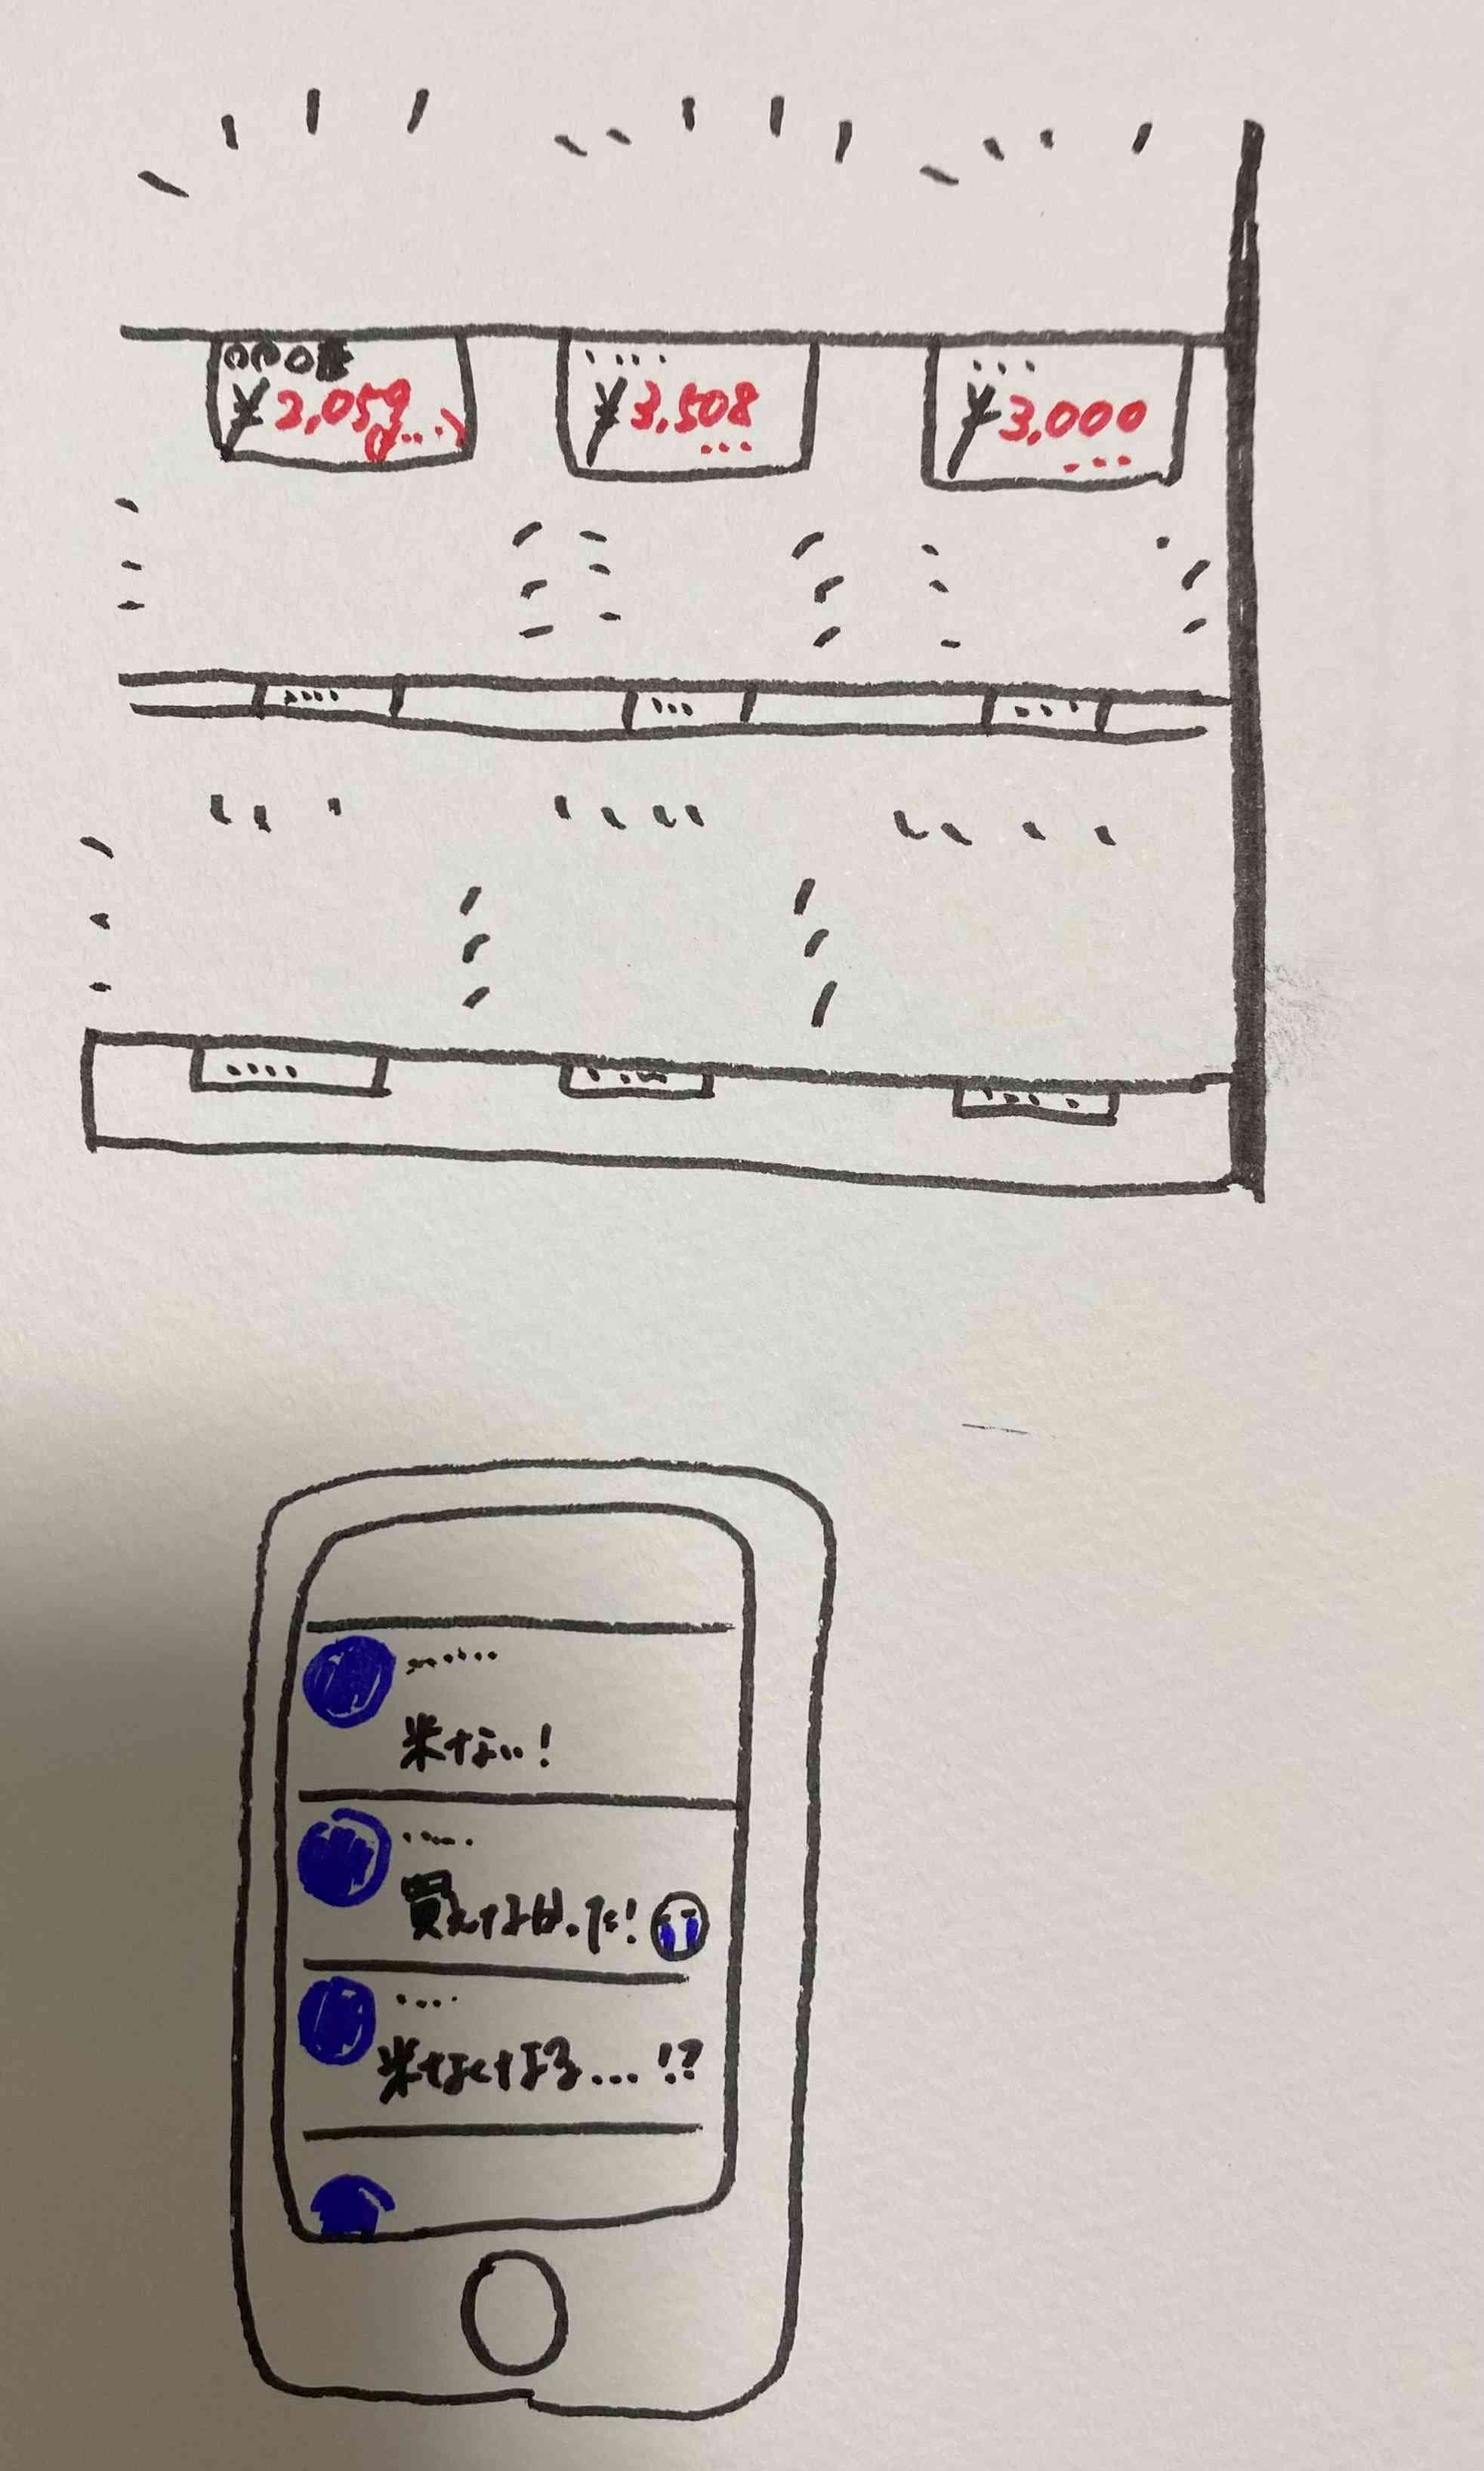 ¥2,059
¥3,508
¥3,000
米ない!
買えなかった!
米なくなる...!?